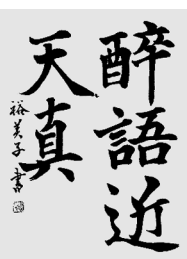 醉語近
天真
裕美子書